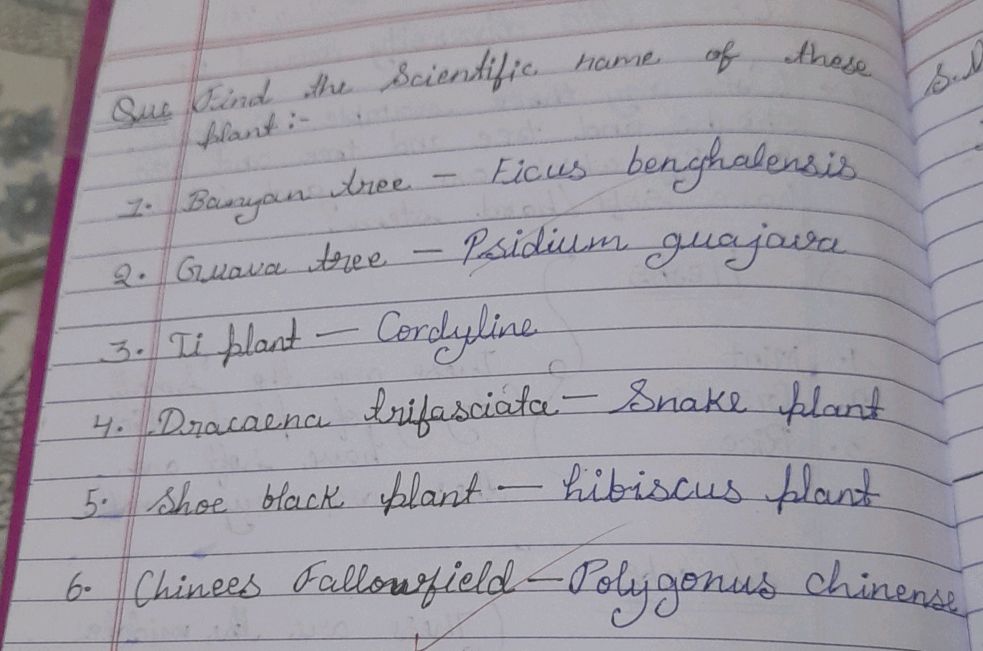 Que Find the Scientific name of these
plant :-
1. Banyan tree - Ficus benghalensis
2. Guava tree - Psidium guajava
3. Ti plant - Cordyline
4. Dracaena trifasciata - Snake plant
5. Shoe black plant - hibiscus plant
6. Chinees Fallowfield - Polygonus chinense